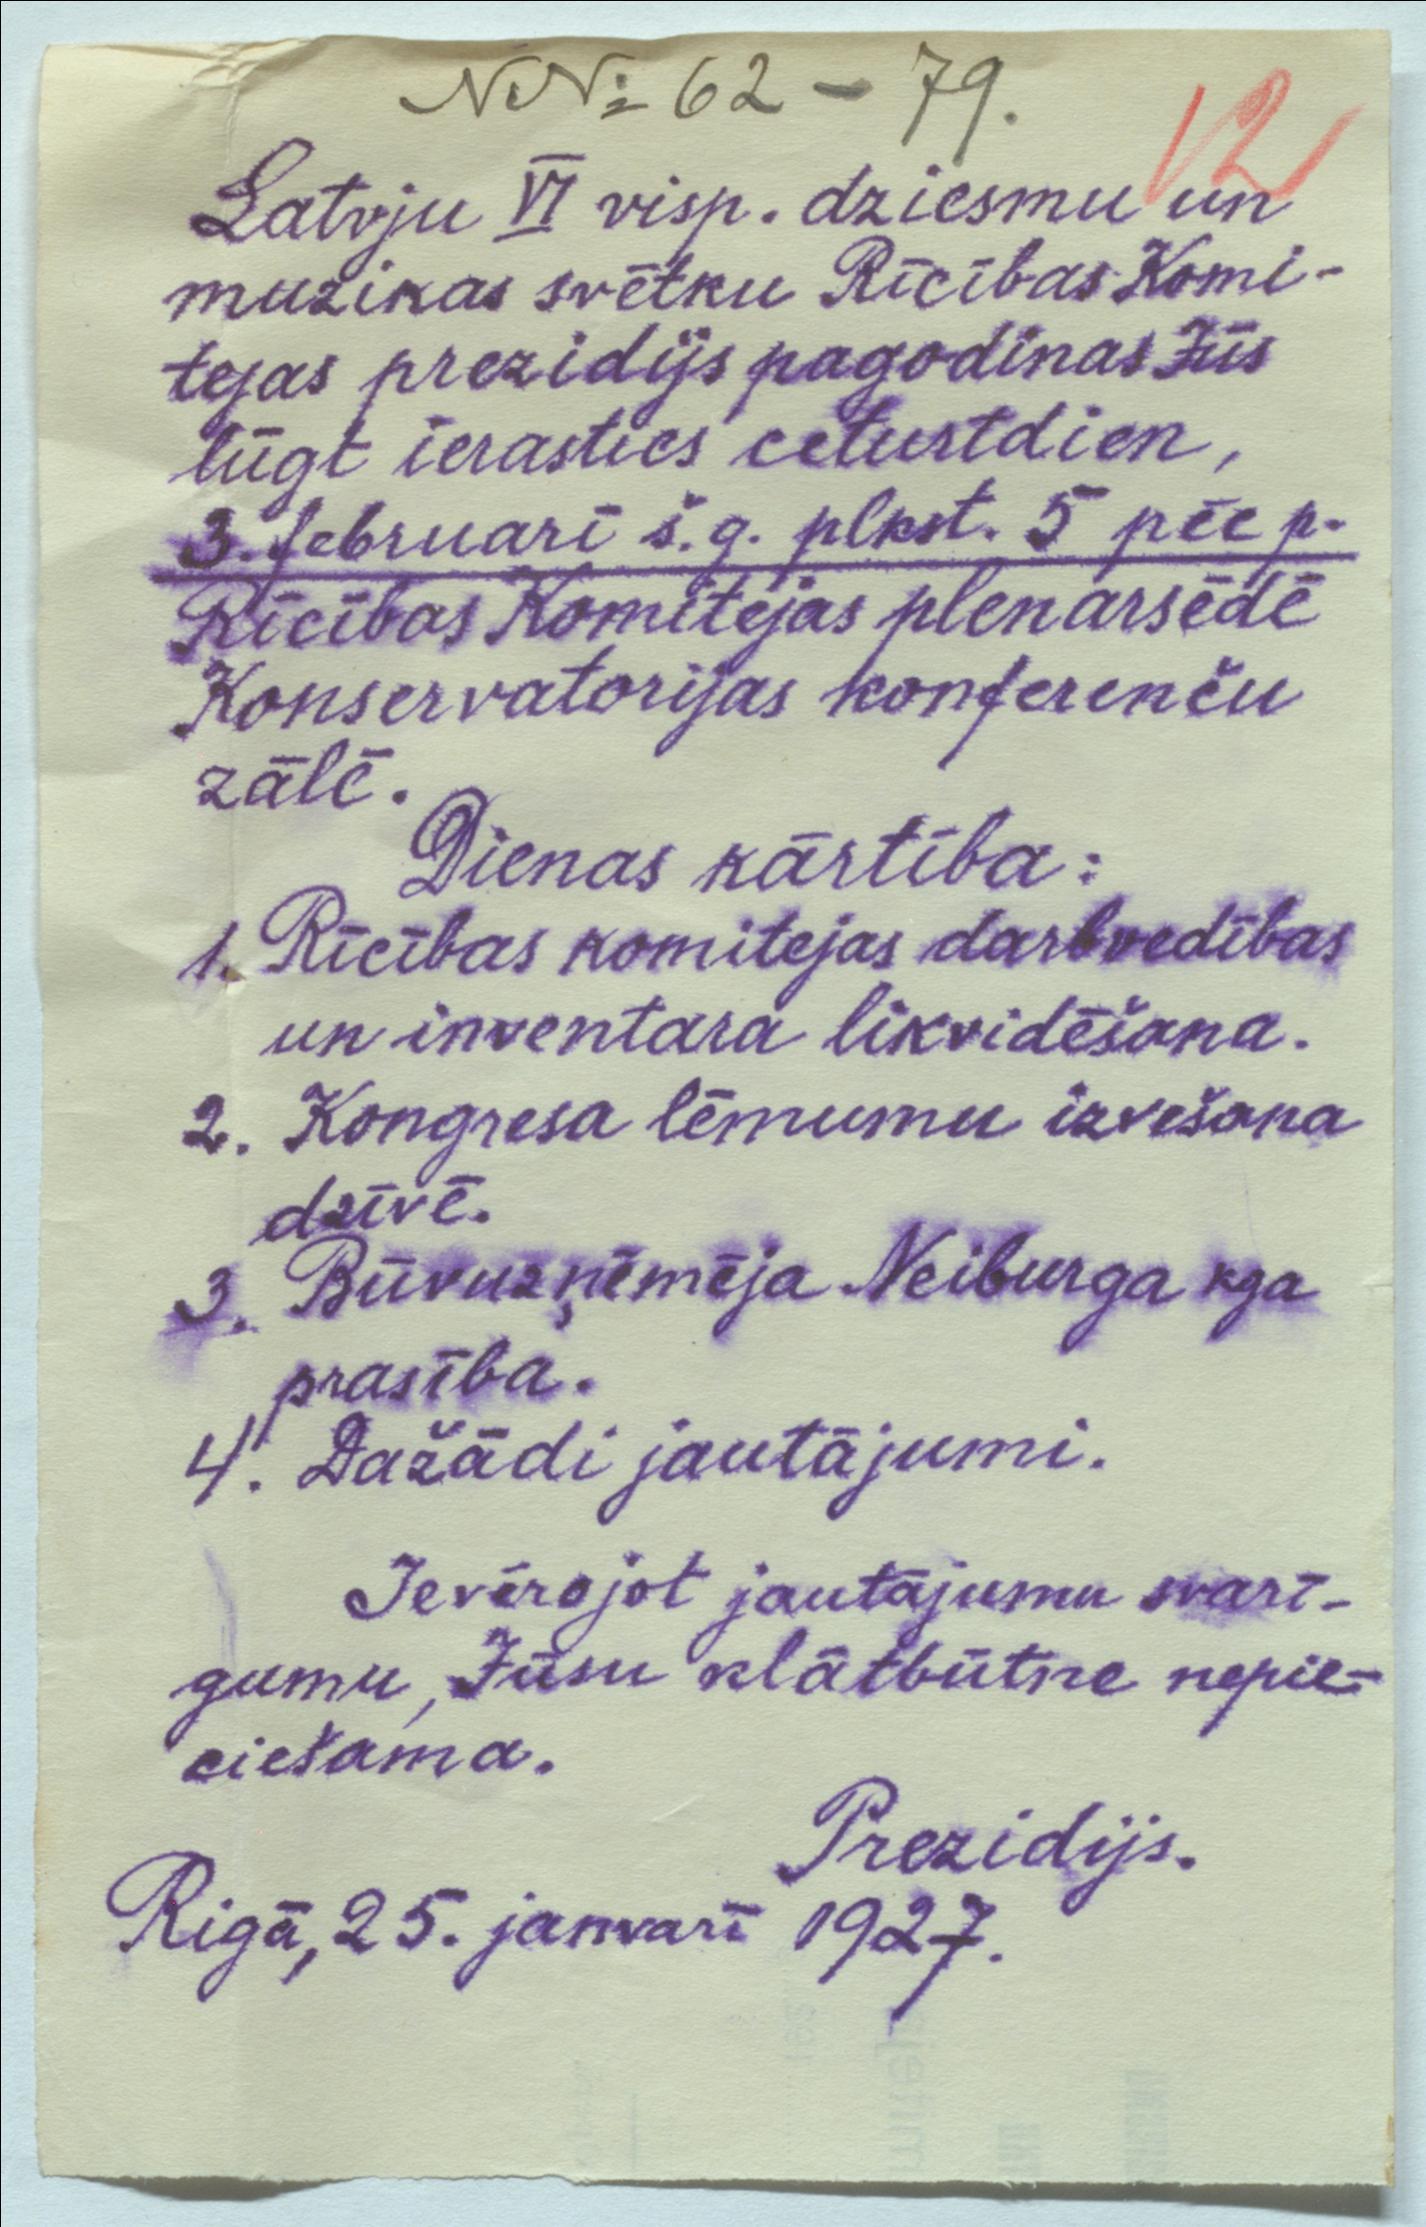 NNo 62 – 79.
12
Latvju VI visp. dziesmu un
muzikas svētku Rīcības Komi-
tejas prezidijs pagodinas Jūs
lūgt ierasties ceturtdien,
3. februarī š.g. plkst. 5 pēc p.
Rīcības Komitejas plenarsēdē
Konservatorijas konferenču
zālē.
Dienas kārtība:
1. Rīcības komitejas darbvedības
un inventara likvidēšana.
2. Kongresa lēmumu izvešana
dzīvē.
3. Būvuzņēmēja Neiburga kga
prasība.
4. Dažādi jautājumi.
Ievērojot jautājumu svarī-
gumu, Jūsu klātbūtne nepie-
ciešama.
Prezidijs.
Rigā, 25. janvarī 1927.